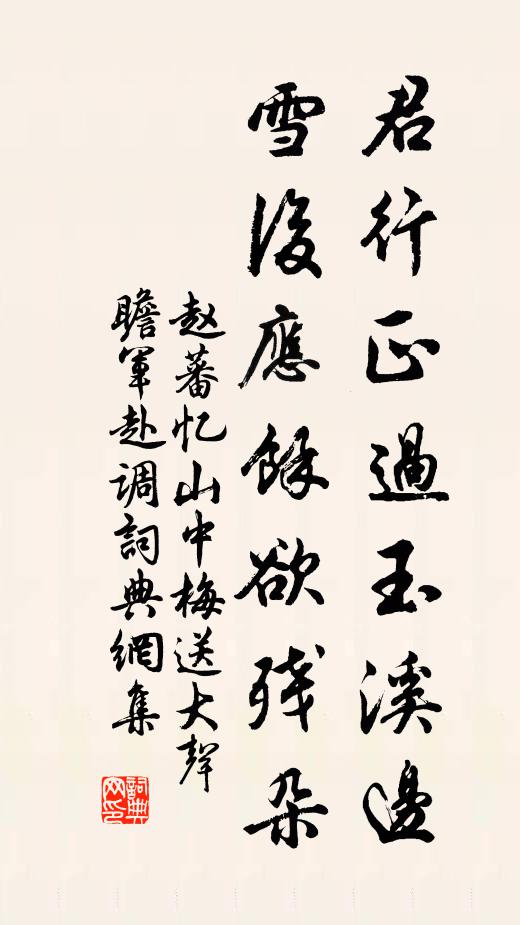 君行正過玉溪邊
雪後應餘欲残朵
赵蕃忆山中梅送大聲
瞻軍赴调詞典網集
詞典网印